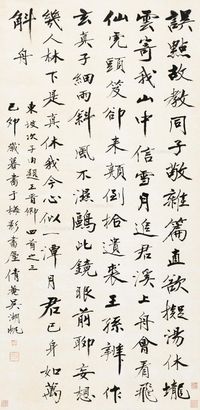 誤點故教同子敬雜篇直欲擬湯休壠
雲寄我山中信雪月追君溪上舟會看飛
仙虎頭笈卻來顛倒拾遺裘王孫辦作
玄真子細雨斜風不濕鷗此鏡眼前聊妄想
幾人林下是真休我今心似一潭月君已身如萬
斛舟
東坡次子由題王晉卿 四首之三
己卯歲暮書于梅影書屋倩菴吳湖帆